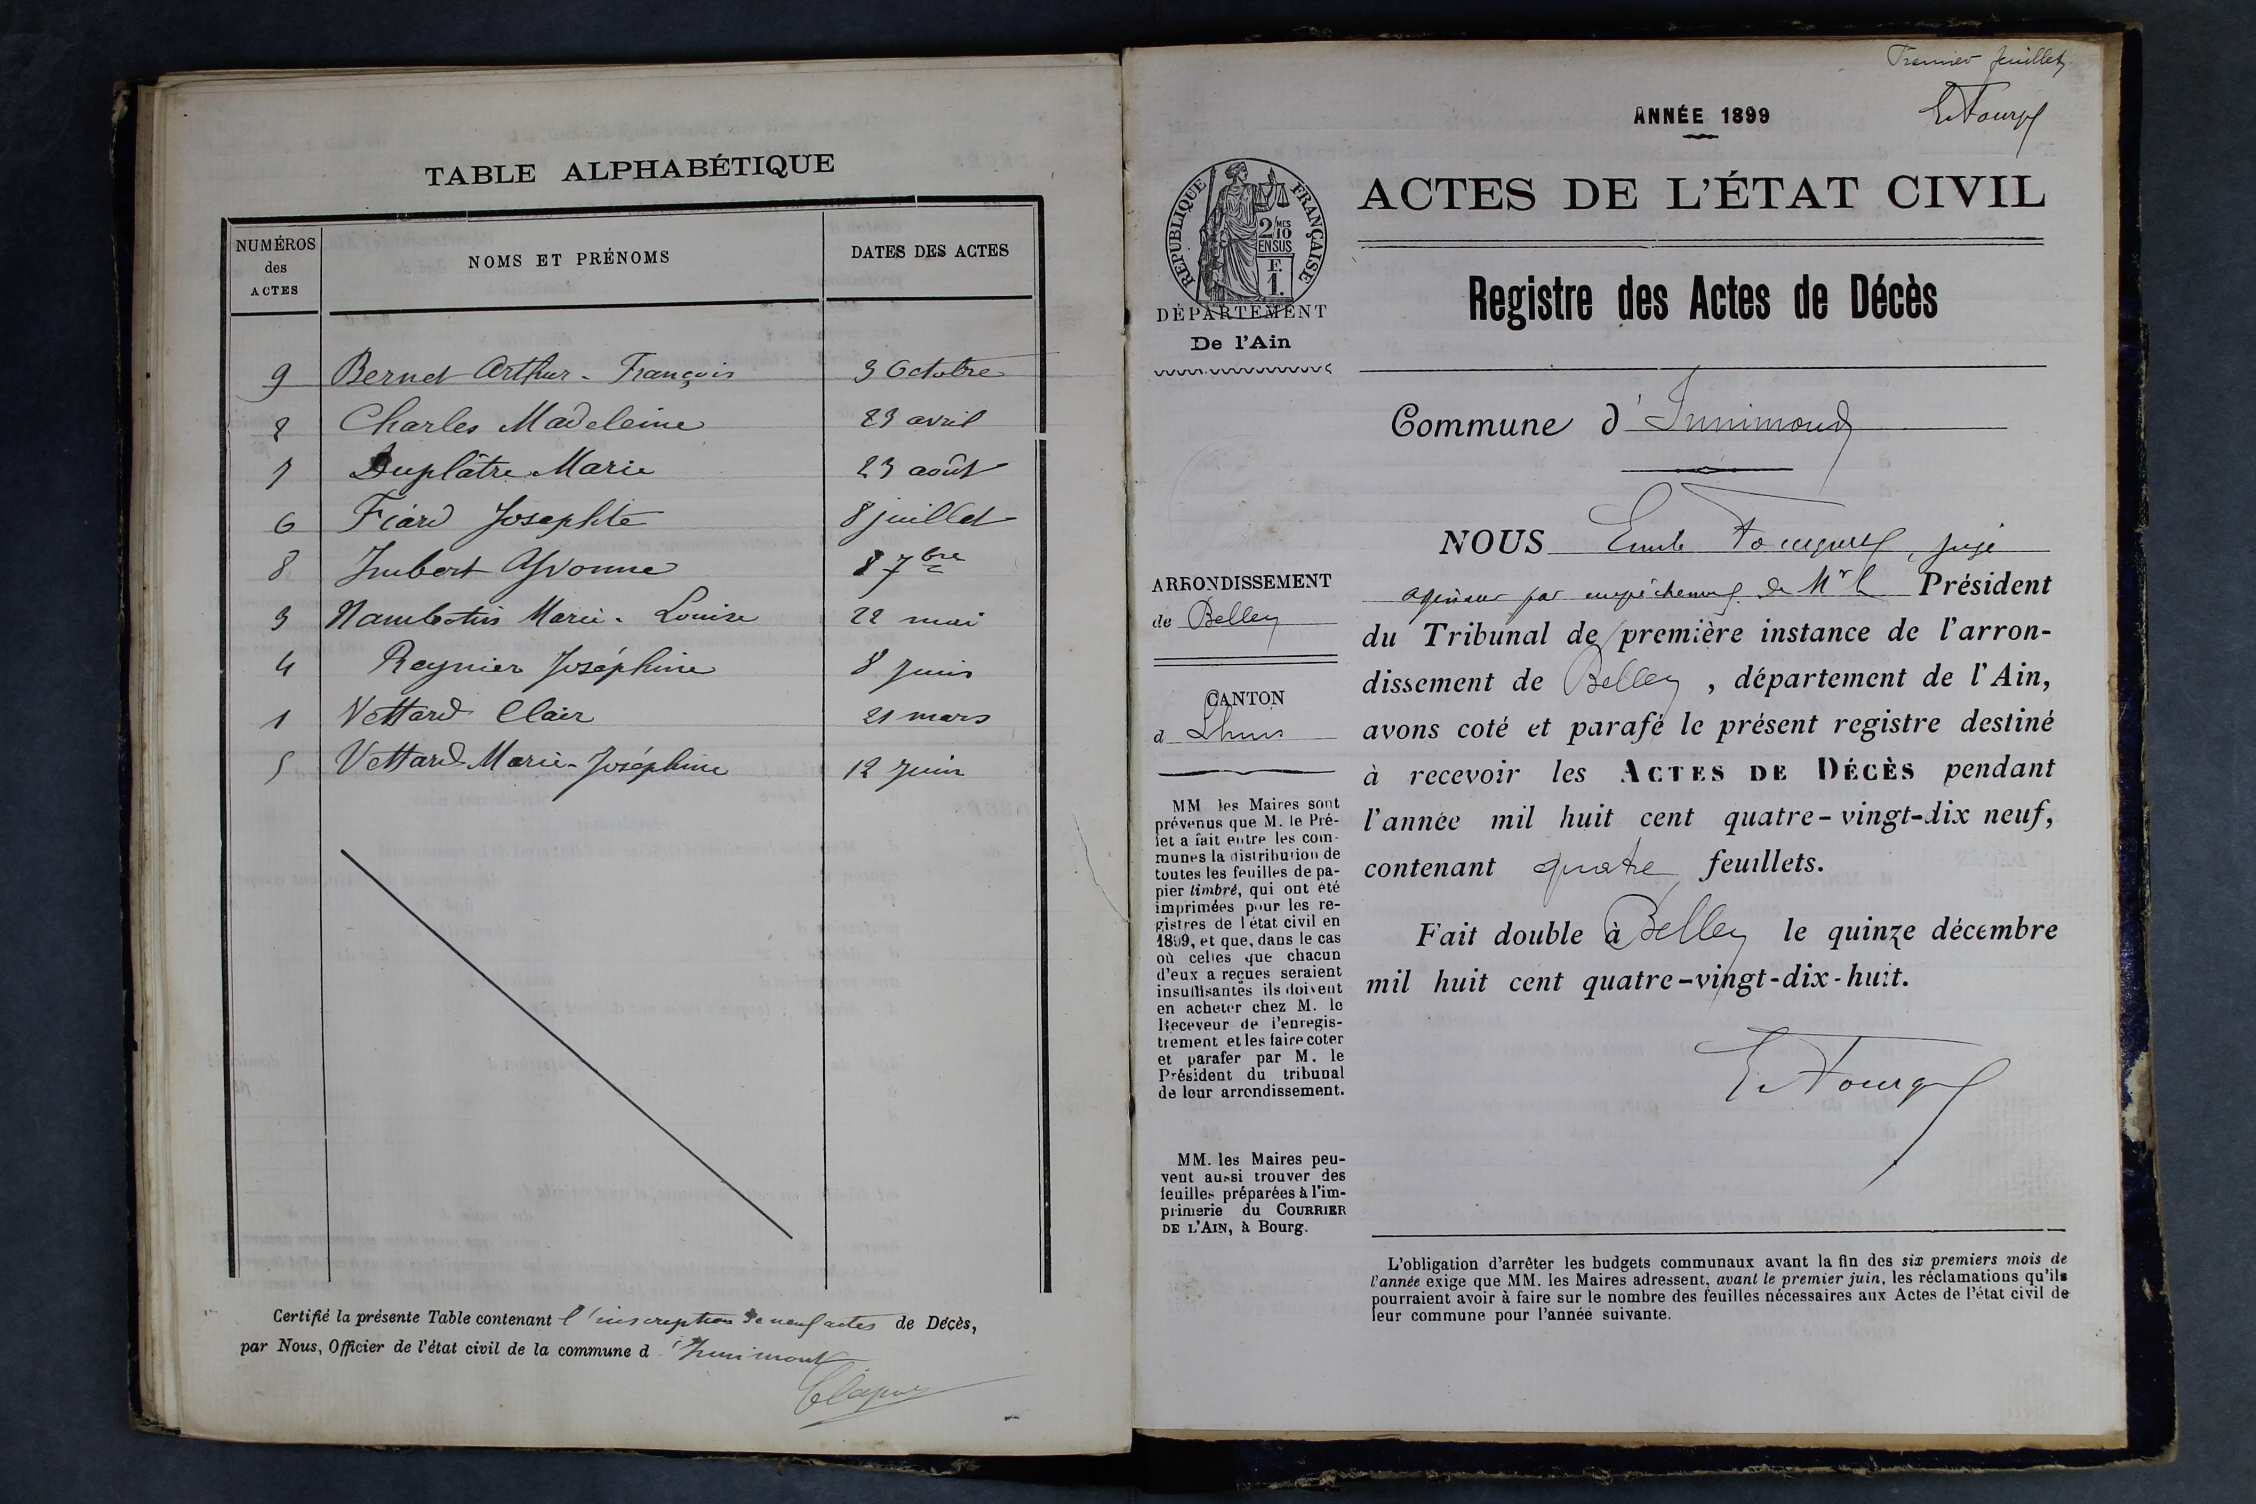 TABLE ALPHABÉTIQUE
NUMÉROS des ACTES | NOMS ET PRÉNOMS | DATES DES ACTES
9 Bernet Arthur-François 3 Octobre
2 Charles Madeleine 23 avril
7 Duplâtre Marie 23 août
6 Fiard Josephte 8 juillet
8 Imbert Yvonne 8 7bre
3 Nambotin Marie-Louise 22 mai
4 Reynier Joséphine 8 Juin
1 Vettard Clair 21 mars
5 Vettard Marie-Joséphine 12 juin
Certifié la présente Table contenant l'inscription de neuf actes de Décès,
par Nous, Officier de l'état civil de la commune d'Innimont
Premier feuillet
ANNÉE 1899
ACTES DE L'ÉTAT CIVIL
RÉPUBLIQUE FRANÇAISE
2/10 MES
EN SUS
F.
1.
DÉPARTEMENT
De l'Ain
Registre des Actes de Décès
Commune d'Innimond
ARRONDISSEMENT
de Belley
CANTON
d Lhuis
MM les Maires sont
prévenus que M. le Pré-
fet a fait entre les com-
munes la distribution de
toutes les feuilles de pa-
pier timbré, qui ont été
imprimées pour les re-
gistres de l'état civil en
1899, et que, dans le cas
où celles que chacun
d'eux a reçues seraient
insuffisantes ils doivent
en acheter chez M. le
Receveur de l'enregis-
trement et les faire coter
et parafer par M. le
Président du tribunal
de leur arrondissement.
MM. les Maires peu-
vent aussi trouver des
feuilles préparées à l'im-
primerie du COURRIER
DE L'AIN, à Bourg.
NOUS Emile Fourquet, juge
agissant par empêchement de Mr le Président
du Tribunal de première instance de l'arron-
dissement de Belley, département de l'Ain,
avons coté et parafé le présent registre destiné
à recevoir les ACTES DE DÉCÈS pendant
l'année mil huit cent quatre-vingt-dix neuf,
contenant quatre feuillets.
Fait double à Belley le quinze décembre
mil huit cent quatre-vingt-dix-huit.
L'obligation d'arrêter les budgets communaux avant la fin des six premiers mois de
l'année exige que MM. les Maires adressent, avant le premier juin, les réclamations qu'ils
pourraient avoir à faire sur le nombre des feuilles nécessaires aux Actes de l'état civil de
leur commune pour l'année suivante.